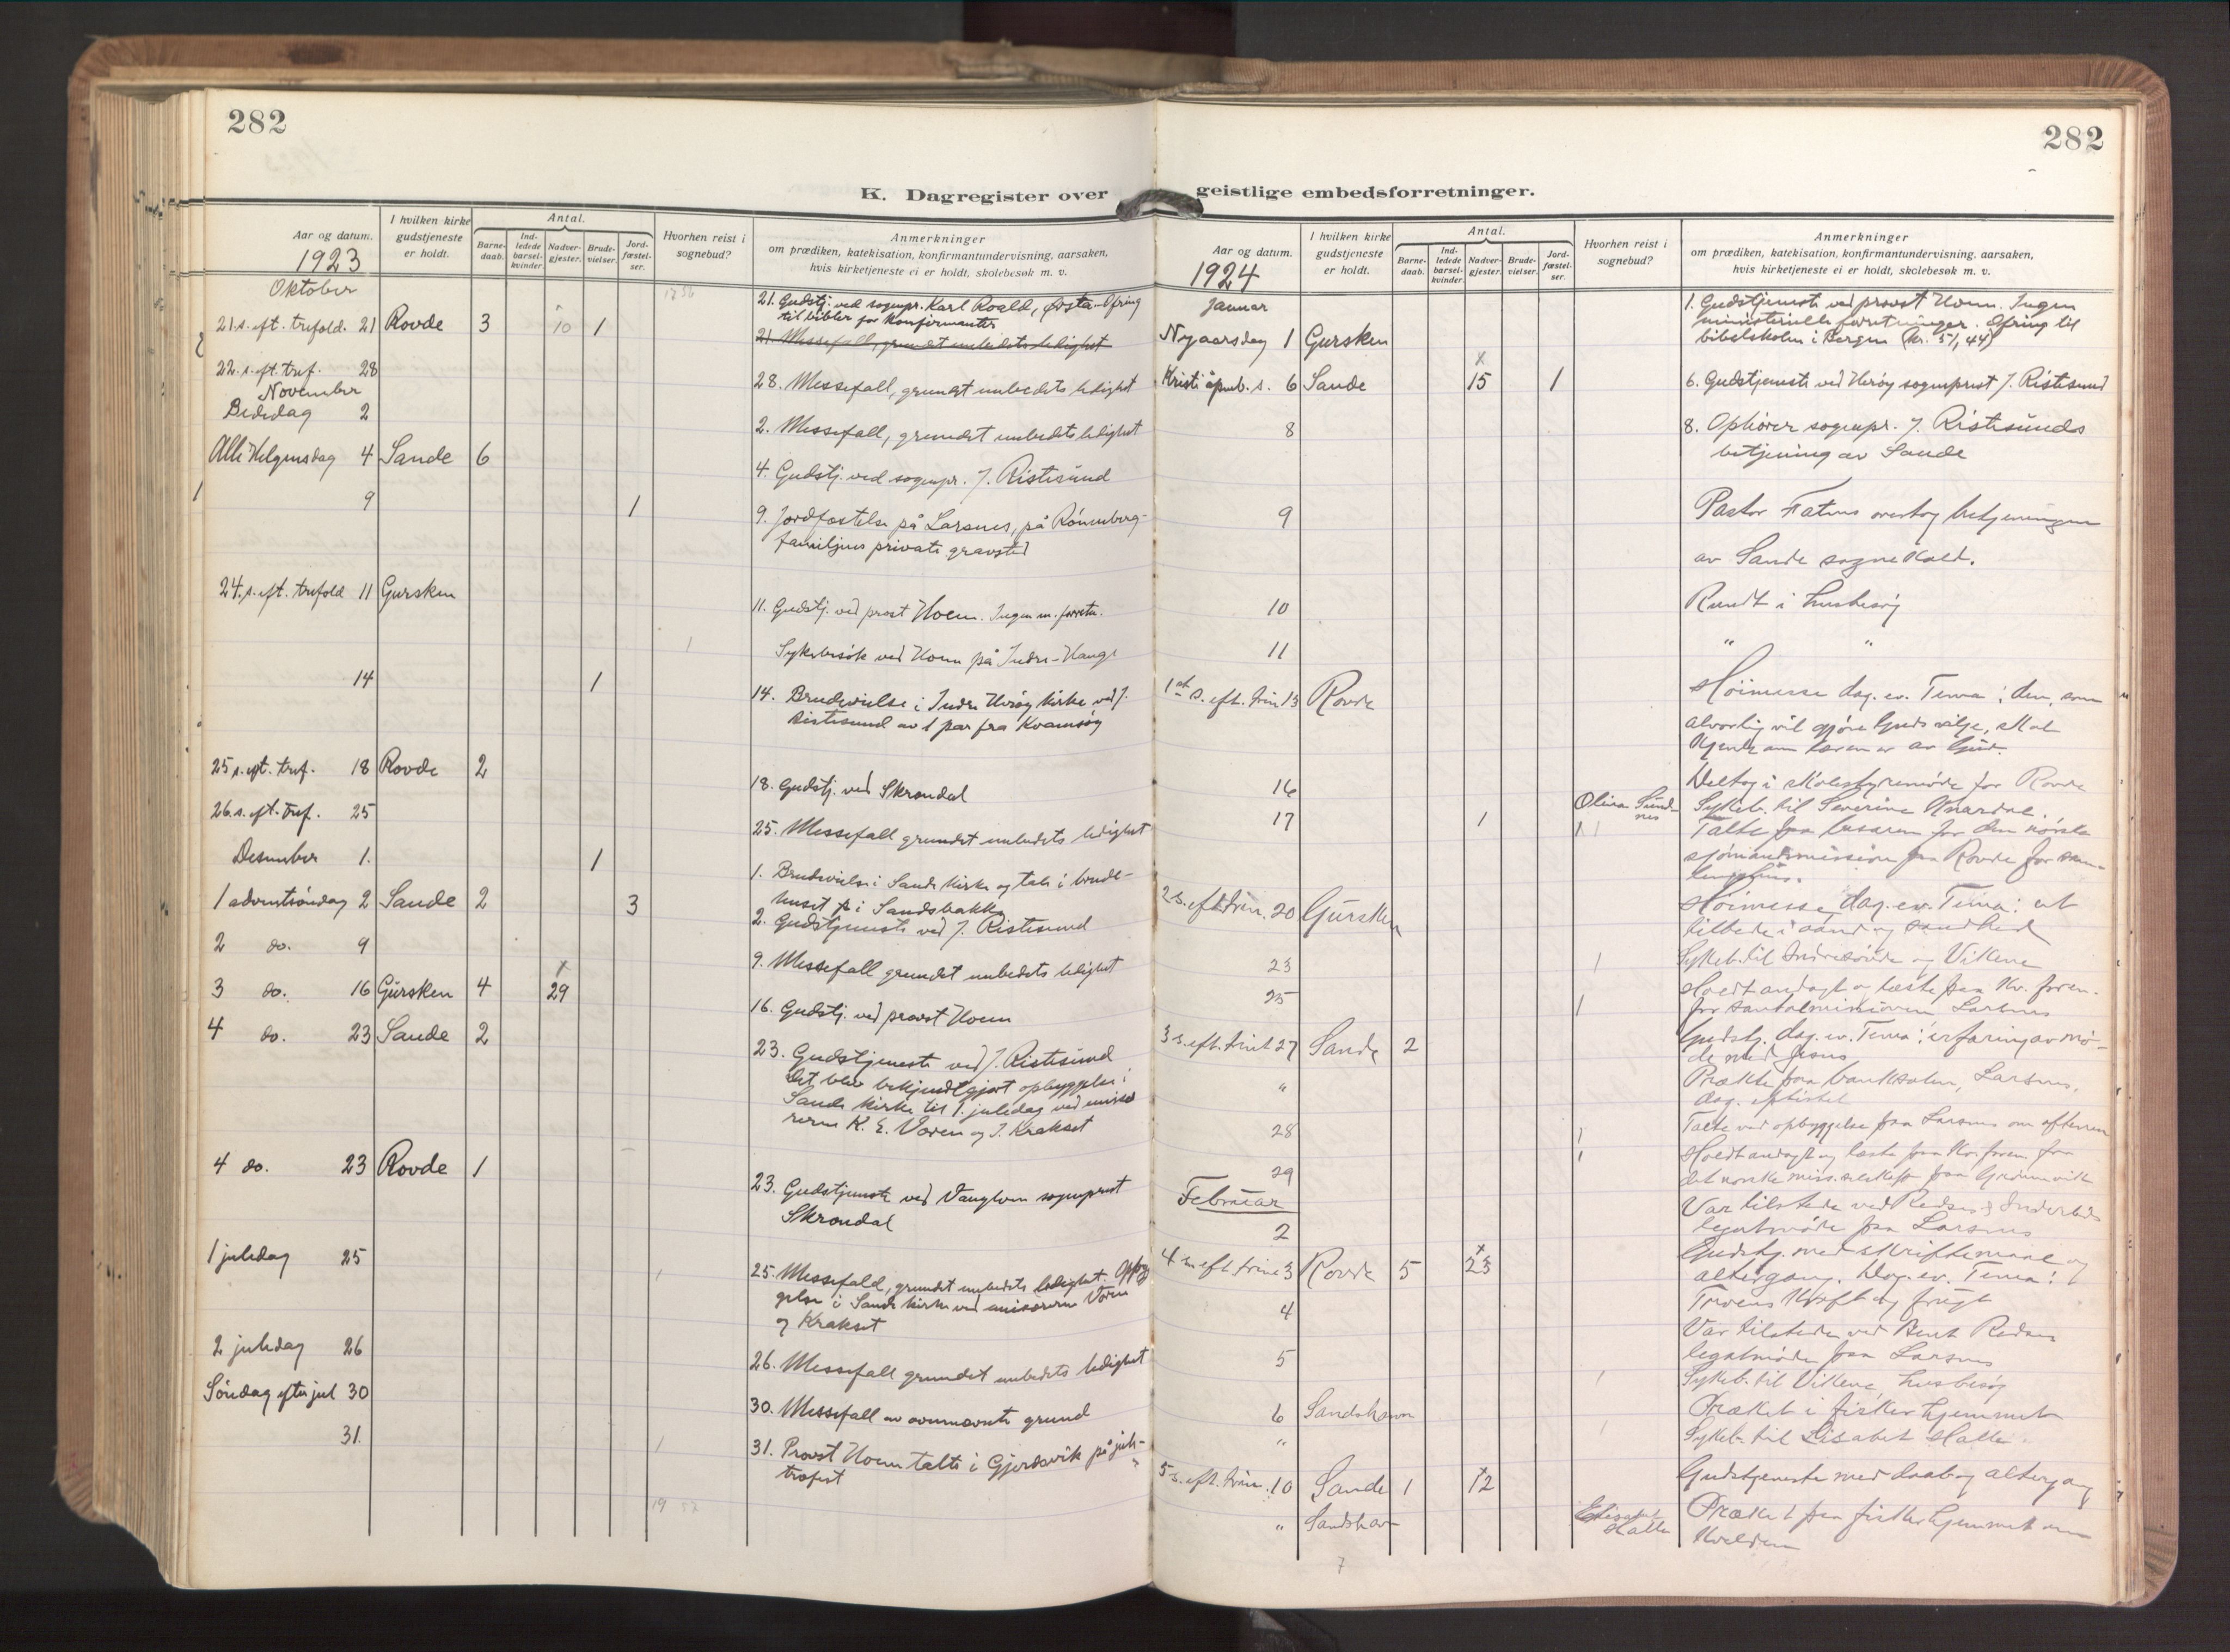 282
K. Dagregister over
Aar og datum.
1923
I hvilken kirke
gudstjeneste
er holdt.
Antal.
Barne-
daab.
Ind-
ledede
barsel-
kvinder.
Nadver-
gjester.
Brude-
vielser.
Jord-
fæstel-
ser.
Hvorhen reist i
sognebud?
Anmerkninger
om prædiken, katekisation, konfirmantundervisning, aarsaken,
hvis kirketjeneste ei er holdt, skolebesøk m. v.
Oktober
21. s. eft. trefold. 21 Rovde 3 10 1 21. Gudstj. ved sognepr. Karl Roald, Ørsta. Ofring
til bibler for konfirmanter
21. Messefall, grundet embedets ledighet
22. s. eft. tref. 28 28. Messefall, grundet embedets ledighet
November
Bededag 2 2. Messefall, grundet embedets ledighet
Alle Helgensdag 4 Sande 6 4. Gudstj. ved sognepr. J. Ristesund
9 1 9. Jordfæstelse på Larsnes, på Rönneberg-
familjens private gravsted
24. s. eft. trefold 11 Gursken 11. Gudstj. ved prost Hoem. Ingen m. forretn.
1 Sykebesök ved Hoem på Indre-Hauge
14 1 14. Brudevielse i Indre Heröy kirke ved J.
Ristesund av 1 par fra Kvamsöy
25 s. eft. tref. 18 Rovde 2 18. Gudstj. ved Skrondal
26. s. eft. tref. 25 25. Messefall grundet embedets ledighet
Desember 1. 1 1. Brudevielse i Sande kirke og tale i brude-
huset i Sandsbakk
1 adventsöndag 2 Sande 2 3 2. Gudstjeneste ved J. Ristesund
2 do. 9 9. Messefall grundet embedets ledighet
3 do. 16 Gursken 4 29 16. Gudstj. ved provst Hoem
4 do. 23 Sande 2 23. Gudstjeneste ved J. Ristesund
Det blev bekjendtgjort opbyggelse i
Sande kirke til 1. juledag ved
K. E. Voren og J. Krakset
4 do. 23 Rovde 1 23. Gudstjeneste ved Vanylven sogneprest
Skrondal
1 juledag 25 25. Messefald, grundet embedets ledighet. Opbyg-
gelse i Sande kirke ved Voren
og Krakset
2 juledag 26 26. Messefall grundet embedets ledighet
Söndag efter jul 30 30. Messefall av ovennævnte grund
31. 31. Provst Hoem talte i Gjerdsvik på jule-
trefest
282
geistlige embedsforretninger.
Aar og datum.
1924
I hvilken kirke
gudstjeneste
er holdt.
Antal.
Barne-
daab.
Ind-
ledede
barsel-
kvinder.
Nadver-
gjester.
Brude-
vielser.
Jord-
fæstel-
ser.
Hvorhen reist i
sognebud?
Anmerkninger
om prædiken, katekisation, konfirmantundervisning, aarsaken,
hvis kirketjeneste ei er holdt, skolebesøk m. v.
Januar
Nyaarsdag 1 Gursken 1. Gudstjeneste ved provst Hoem. Ingen
ministerielle forretninger. Ofring til
bibelskolen i Bergen (kr. 51,44)
Kristi åpenb. s. 6 Sande 15 1 6. Gudstjeneste ved Heröy sogneprest J. Ristesund
8 8. Ophörer sognepr. J. Ristesunds
betjening av Sande
9 Pastor overtog betjeningen
av Sande sognekald.
10 Rundt i husbesög
11 " "
1st s. eft. trin 13 Rovde Höimesse dag. ev. Tema: den, som
alvorlig vil gjöre Guds vilje, skal
kjende om læren er av Gud.
16 Deltog i skolestyremöde for Rovde
17 1 Olina Sundnes Sykeb. til Severine
Talte paa basaren for den norske
sjömandsmission paa Rovde
2 s. eft. trin. 20 Gursken Höimesse dag. ev. Tema: at
tilbede i aand og sandhed
23 1 Sykeb. til og Vikene
25 1 Holdt andagt og læste paa kv. foren.
for santalmissionen Larsnes
3 s. eft. trint 27 Sande 2 Gudstj. dag. ev. Tema: erfaring av mö-
de med Jesus
" Prækte paa Larsnes,
dag. epistel
28 1 Talte ved opbyggelse paa Larsnes om aftenen
29 1 Holdt andagt og læste paa kv. foren. for
det norske miss. selskap paa
Februar
2 Var tilstede ved
legatmöde paa Larsnes
4 s. eft. trin 3 Rovde 5 23 Gudstj. med skriftemaal og
altergang. Dag. ev. Tema:
Troens kraft og frugt
4 Var tilstede ved
legatmöde paa Larsnes
5 Sykeb. til Vikene husbesög
6 Sandshavn Præket i fiskerhjemmet
" Sykeb. til Lisabet Halle.
5 s. eft. trin. 10 Sande 1 12 Gudstjeneste med daab og altergang
" Sandshavn Elisabet Halle Præket paa fiskerhjemmet om
kvelden
7